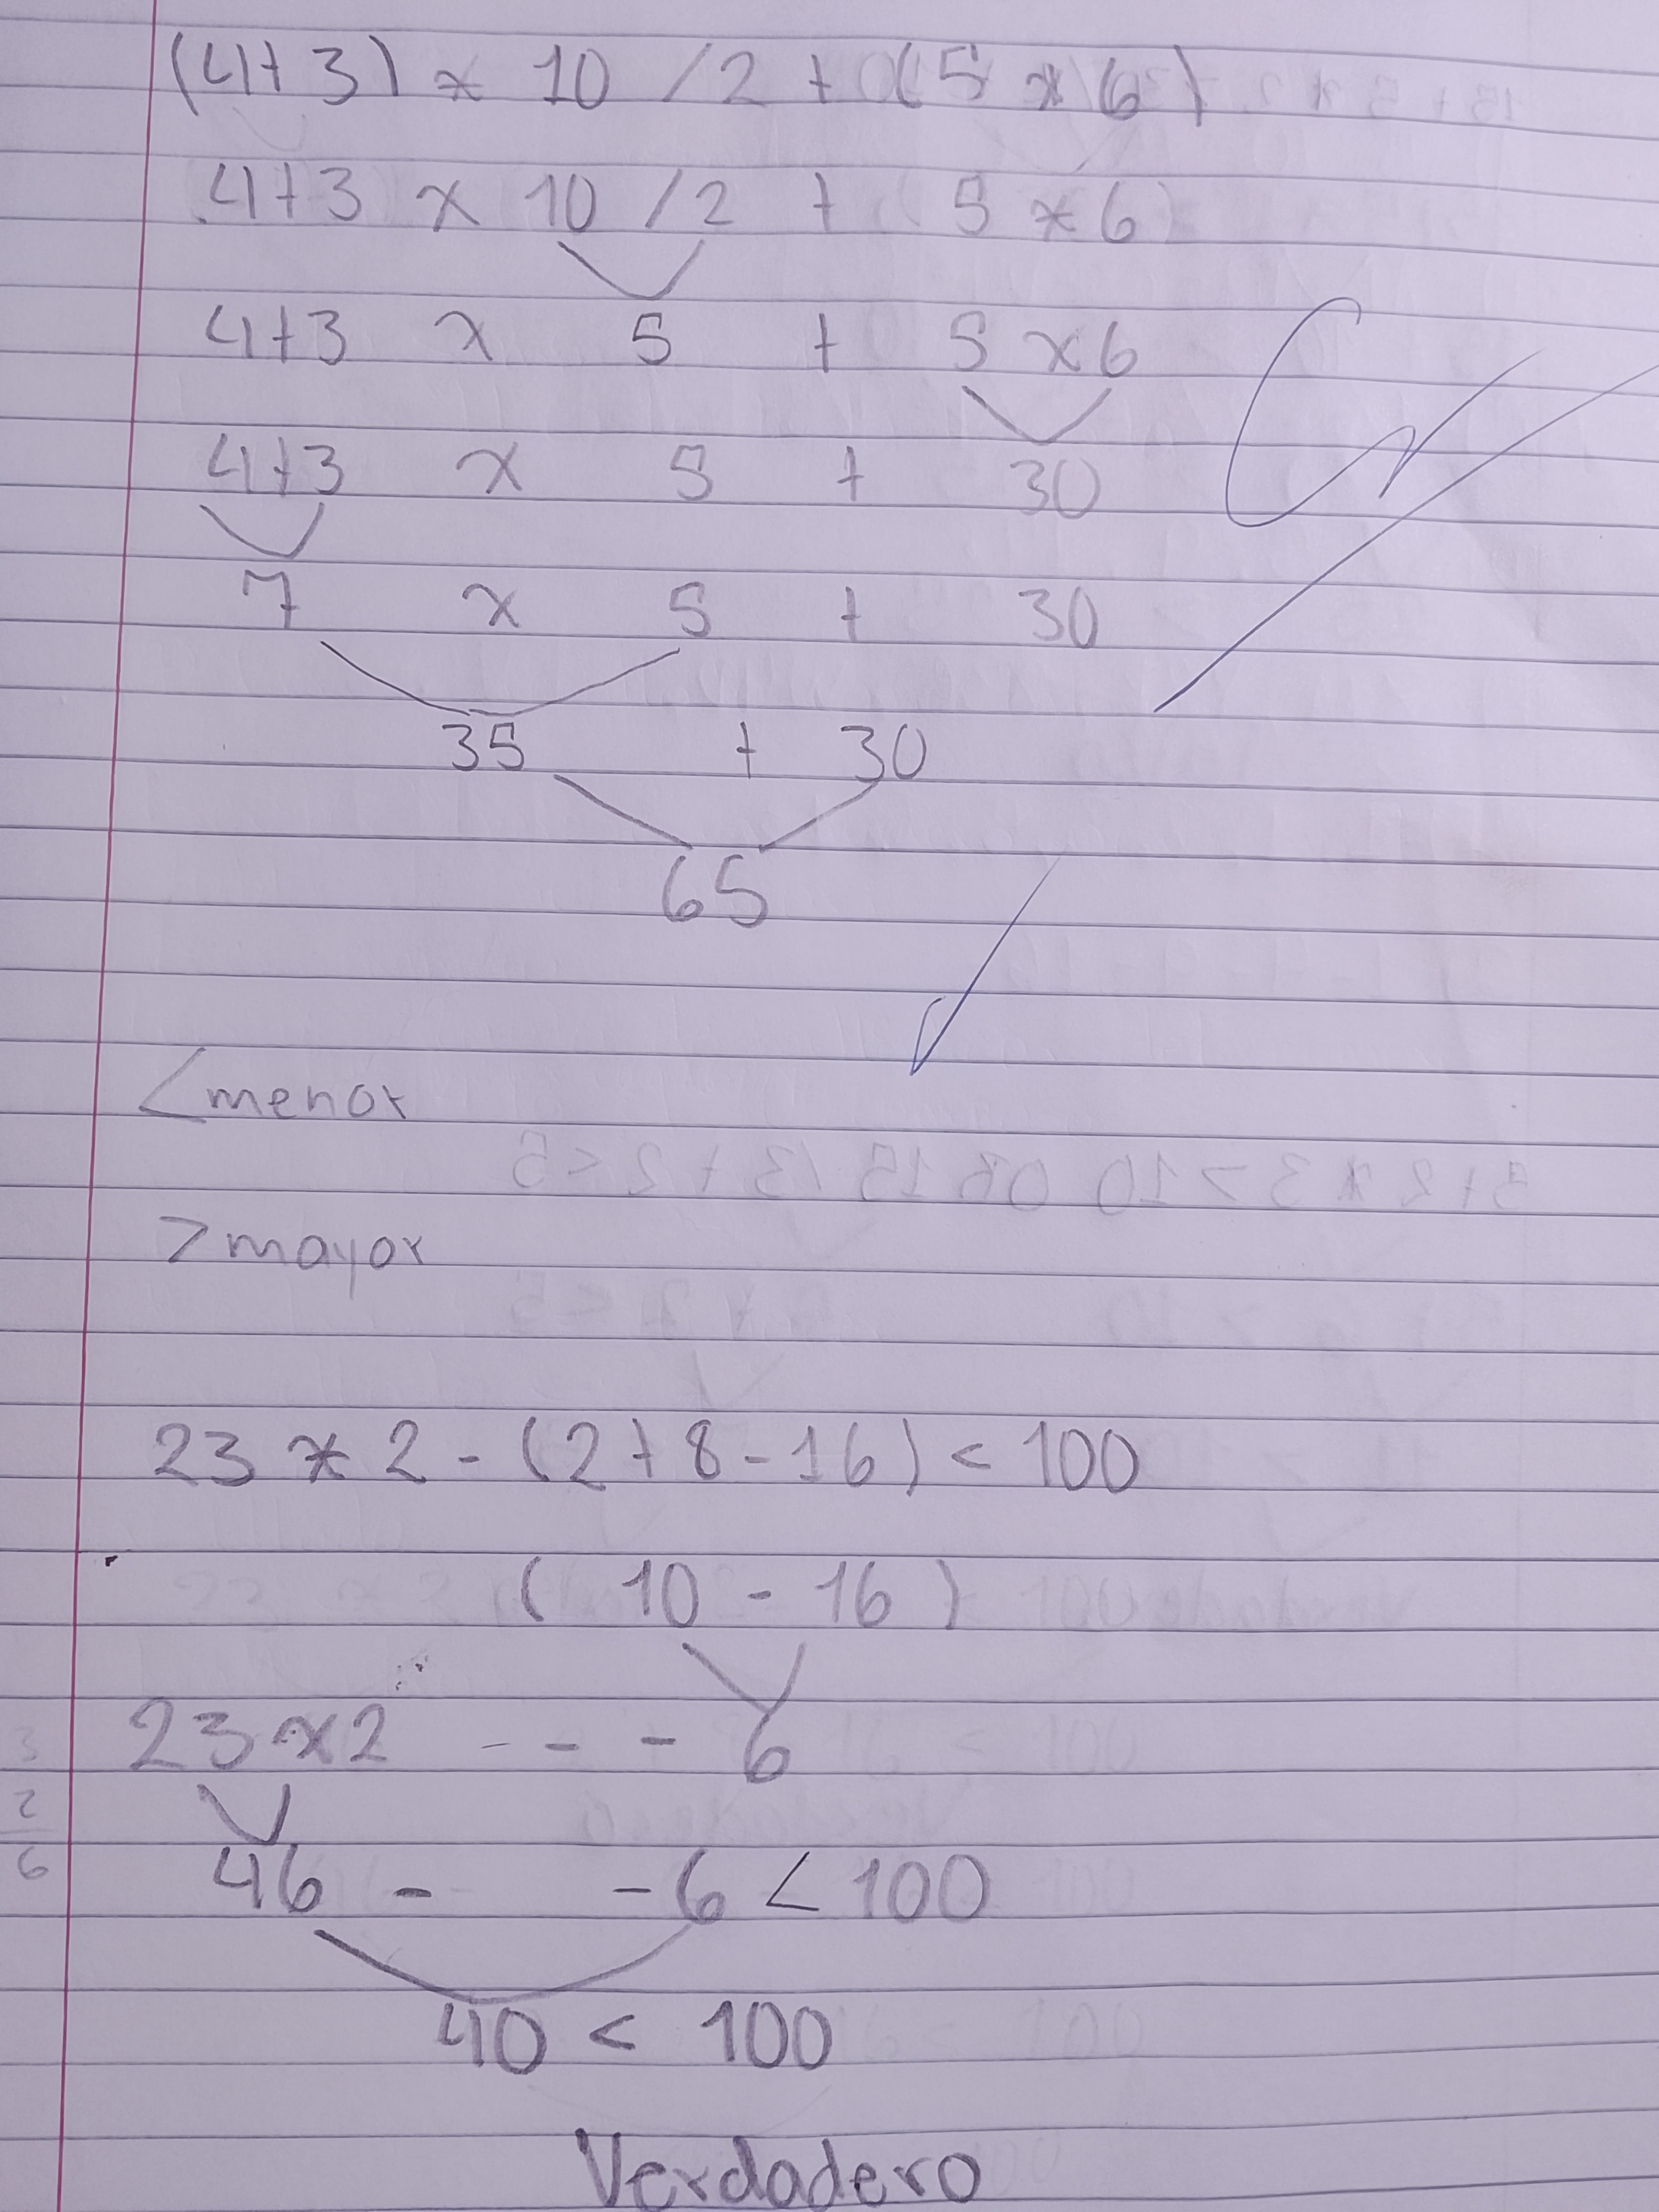 (4+3) * 10 / 2 + (5 * 6)
4+3 x 10 / 2 + ( 5 * 6)
4+3 x 5 + 5 x 6
4+3 x 5 + 30
7 x 5 + 30
35 + 30
65
< menor
> mayor
23 * 2 - (2 + 8 - 16) < 100
( 10 - 16 )
23 x 2 - - - 6
3
2
6
46 - - 6 < 100
40 < 100
Verdadero